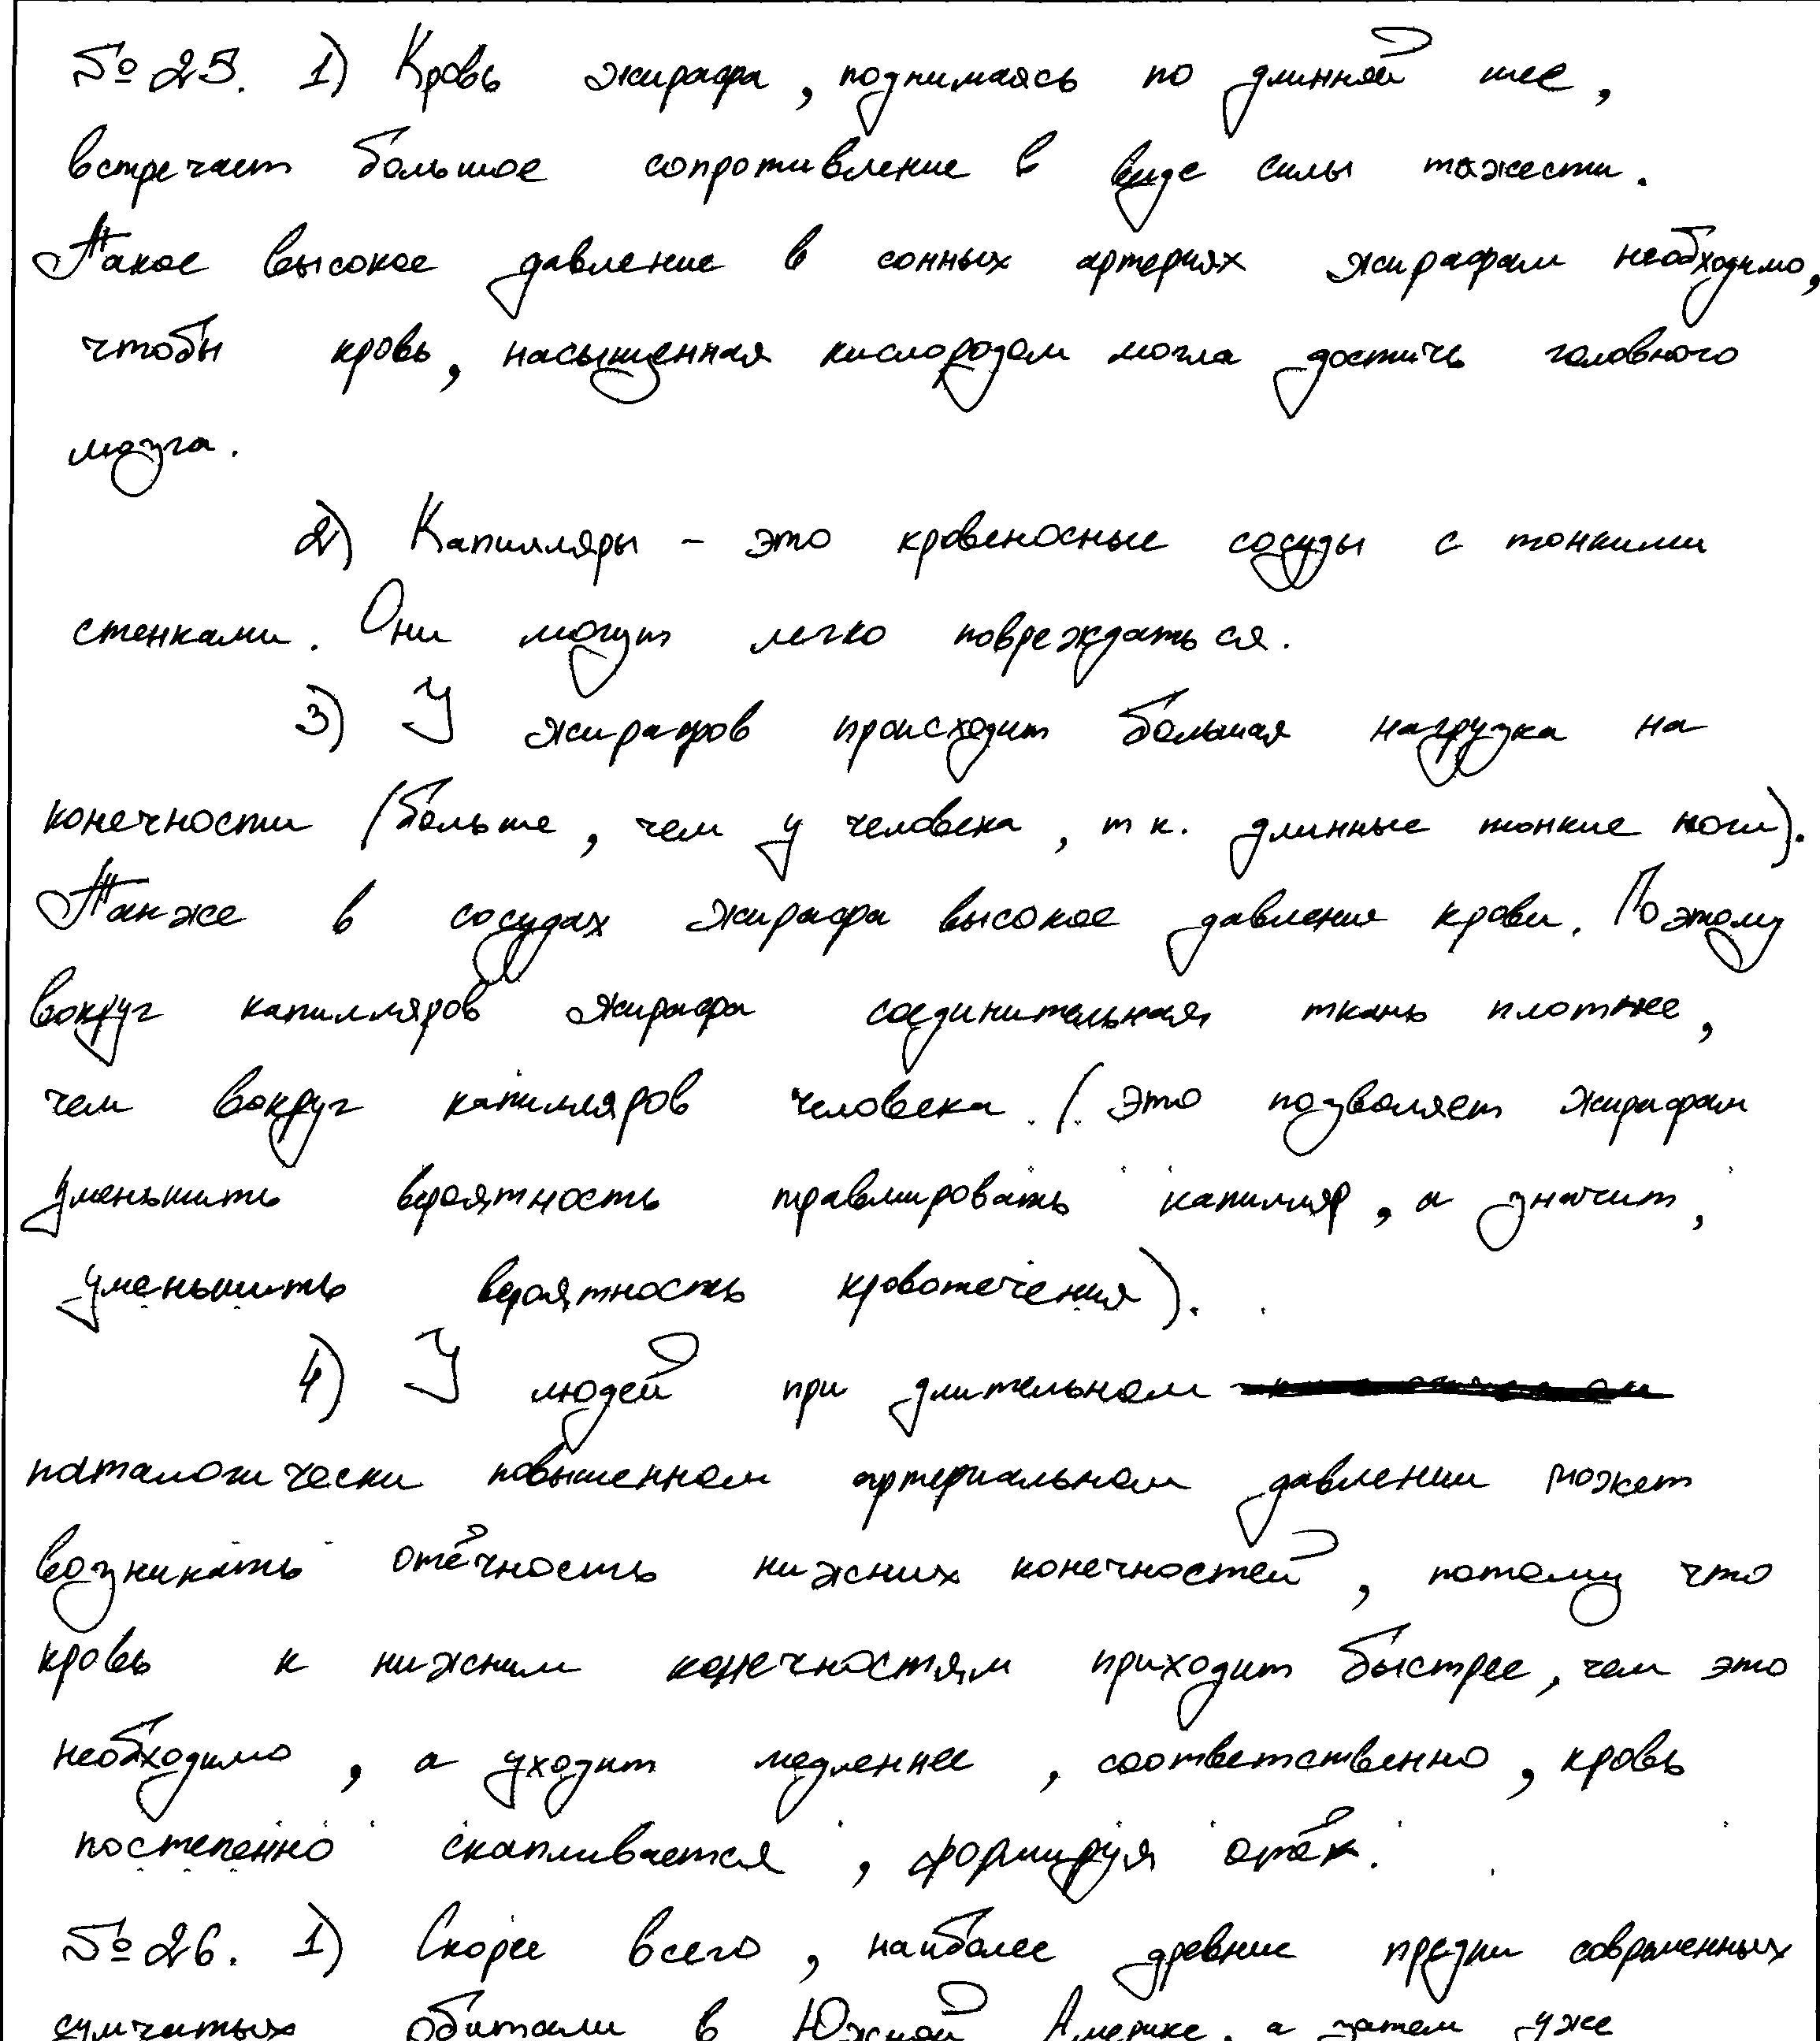 № 25. 1) Кровь жирафа, поднимаясь по длинной шее,
встречает большое сопротивление в виде силы тяжести.
Такое высокое давление в сонных артериях жирафам необходимо,
чтобы кровь, насыщенная кислородом могла достичь головного
мозга.
2) Капилляры - это кровеносные сосуды с тонкими
стенками. Они могут легко повреждаться.
3) У жирафов происходит большая нагрузка на
конечности (больше, чем у человека, т к. длинные тонкие ноги).
Также в сосудах жирафа высокое давление крови. Поэтому
вокруг капилляров жирафа соединительная ткань плотнее,
чем вокруг капилляров человека. (это позволяет жирафам
уменьшить вероятность травмировать капилляр, а значит,
уменьшить вероятность кровотечения).
4) У людей при длительном
паталогически повышенном артериальном давлении может
возникать отёчность нижних конечностей, потому что
кровь к нижним конечностям приходит быстрее, чем это
необходимо, а уходит медленнее, соответственно, кровь
постепенно скапливается, формируя отёк.
№ 26. 1) Скорее всего, наиболее древние предки современных
сумчатых обитали в Южной Америке, а затем уже